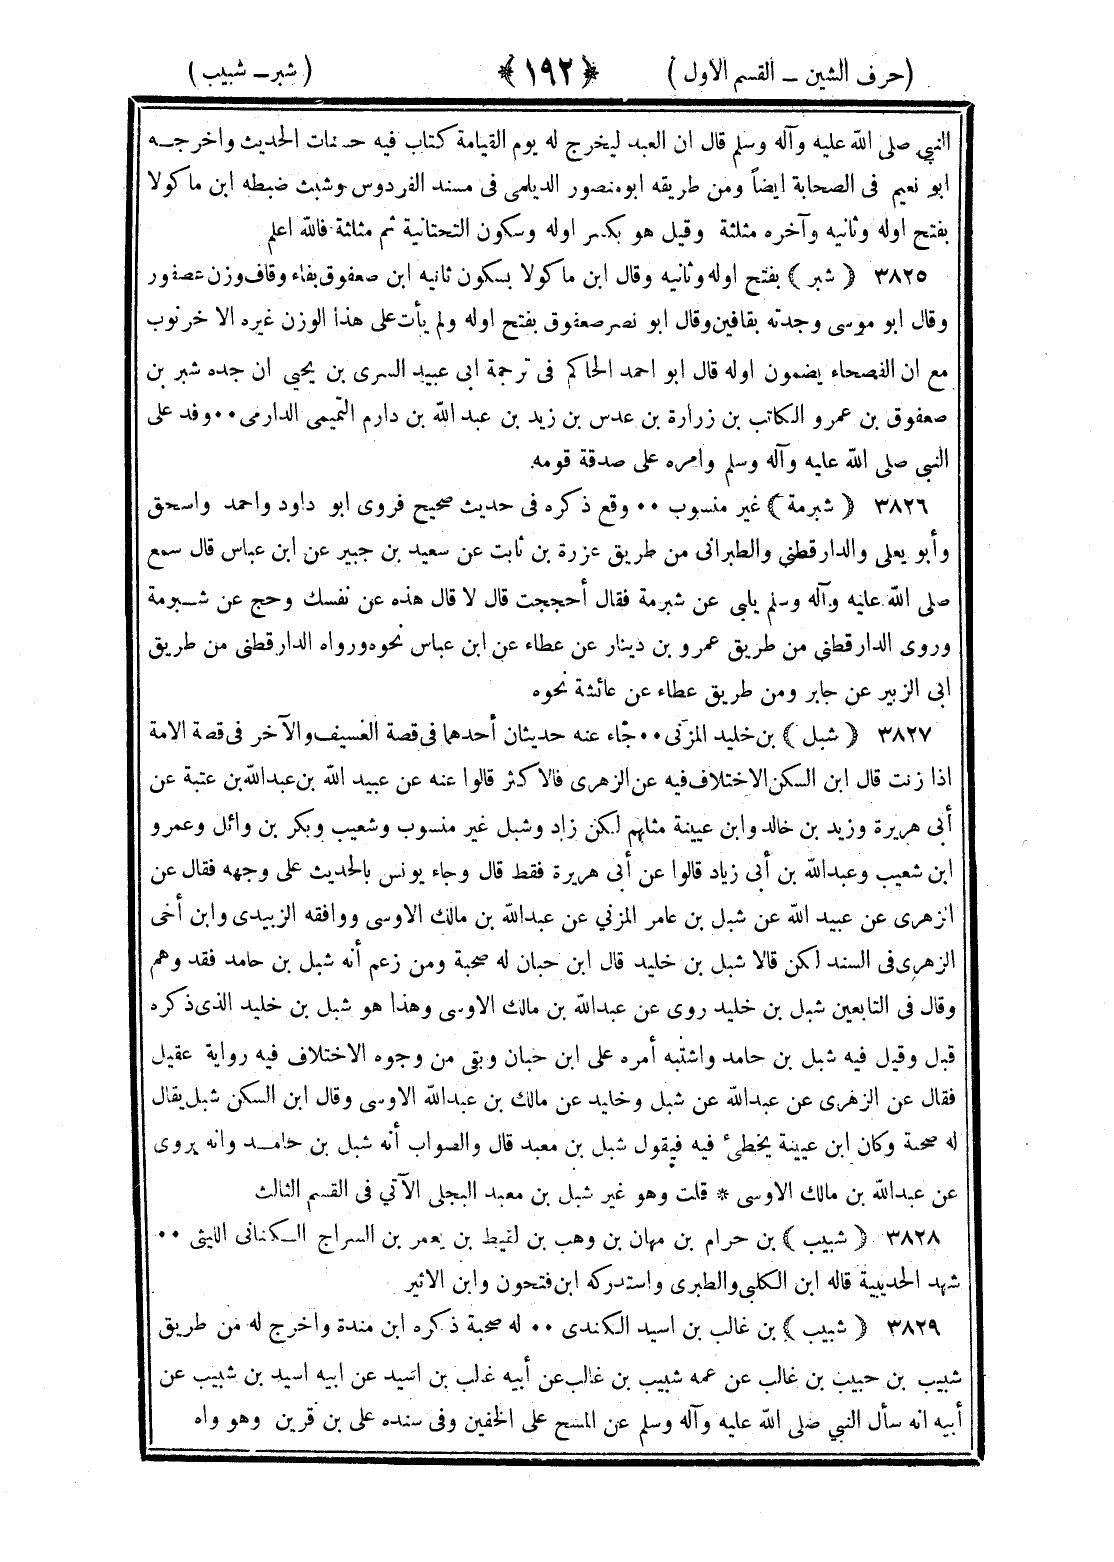 (حرف الشين – القسم الاول) ﴿١٩٢﴾ (شبر – شبيب)
النبي صلى الله عليه وآله وسلم قال ان العبد ليخرج له يوم القيامة كتاب فيه حسنات الحديث واخرجه
ابو نعيم فى الصحابة ايضاً ومن طريقه ابومنصور الديلمى فى مسند الفردوس وشبث ضبطه ابن ماكولا
بفتح اوله وثانيه وآخره مثلثة وقيل هو بكسر اوله وسكون التحتانية ثم مثلثة فالله اعلم
٣٨٢٥ ﴿ شبر ﴾ بفتح اوله وثانيه وقال ابن ماكولا بسكون ثانيه ابن صعفوق بفاء وقاف وزن عصفور
وقال ابو موسى وجدته بقافين وقال ابو نصر صعفوق بفتح اوله ولم يأت على هذا الوزن غيره الا خرنوب
مع ان الفصحاء يضمون اوله قال ابو احمد الحاكم فى ترجمة ابى عبيد السرى بن يحيي ان جده شبر بن
صعفوق بن عمرو الكاتب بن زرارة بن عدس بن زيد بن عبد الله بن دارم التميمى الدارمى٠٠وفد على
النبي صلى الله عليه وآله وسلم وامره على صدقة قومه
٣٨٢٦ ﴿ شبرمة ﴾ غير منسوب ٠٠ وقع ذكره فى حديث صحيح فروى ابو داود واحمد واسحق
وأبو يعلى والدارقطني والطبرانى من طريق عزرة بن ثابت عن سعيد بن جبير عن ابن عباس قال سمع
صلى الله عليه وآله وسلم يلبي عن شبرمة فقال أحججت قال لا قال هذه عن نفسك وحج عن شبرمة
وروى الدارقطنى من طريق عمرو بن دينار عن عطاء عن ابن عباس نحوه ورواه الدارقطنى من طريق
ابى الزبير عن جابر ومن طريق عطاء عن عائشة نحوه
٣٨٢٧ ﴿ شبل ﴾ بن خليد المزنى٠٠جاء عنه حديثان أحدهما فى قصة العسيف والآخر فى قصة الامة
اذا زنت قال ابن السكن الاختلاف فيه عن الزهرى فالاكثر قالوا عنه عن عبيد الله بن عبدالله بن عتبة عن
أبى هريرة وزيد بن خالد وابن عيينة مثلهم لكن زاد وشبل غير منسوب وشعيب وبكر بن وائل وعمرو
ابن شعيب وعبدالله بن أبى زياد قالوا عن أبى هريرة فقط قال وجاء يونس بالحديث على وجهه فقال عن
الزهرى عن عبيد الله عن شبل بن عامر المزني عن عبدالله بن مالك الاوسى ووافقه الزبيدى وابن أخى
الزهرى فى السند لكن قالا شبل بن خليد قال ابن حبان له صحبة ومن زعم أنه شبل بن حامد فقد وهم
وقال فى التابعين شبل بن خليد روى عن عبدالله بن مالك الاوسى وهذا هو شبل بن خليد الذى ذكره
قبل وقيل فيه شبل بن حامد واشتبه أمره على ابن حبان وبقى من وجوه الاختلاف فيه رواية عقيل
فقال عن الزهرى عن عبدالله عن شبل وخليد عن مالك بن عبدالله الاوسى وقال ابن السكن شبل يقال
له صحبة وكان ابن عيينة يخطئ فيه فيقول شبل بن معبد قال والصواب أنه شبل بن حامد وانه يروى
عن عبدالله بن مالك الاوسى * قلت وهو غير شبل بن معبد البجلى الآتي فى القسم الثالث
٣٨٢٨ ﴿ شبيب ﴾ بن حرام بن مهان بن وهب بن لقيط بن يعمر بن السراج الكنانى الليثى ٠٠
شهد الحديبية قاله ابن الكلبى والطبرى واستدركه ابن فتحون وابن الاثير
٣٨٢٩ ﴿ شبيب ﴾ بن غالب بن اسيد الكندى ٠٠ له صحبة ذكره ابن مندة واخرج له من طريق
شبيب بن حبيب بن غالب عن عمه شبيب بن غالب عن أبيه غالب بن اسيد عن ابيه اسيد بن شبيب عن
أبيه انه سأل النبي صلى الله عليه وآله وسلم عن المسح على الخفين وفى سنده على بن قرين وهو واه